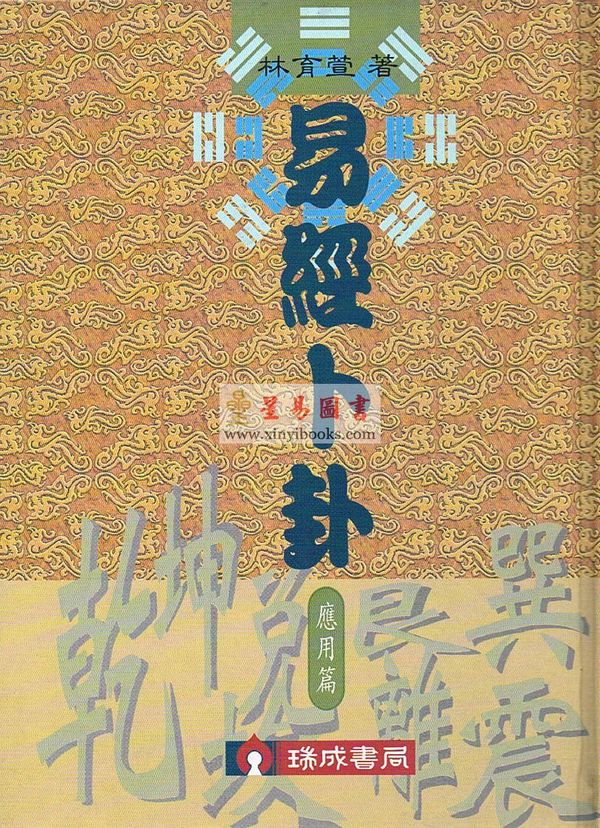 林育萱 著
易經卜卦
星易圖書
www.xinyibooks.com
應用篇
乾 坤 兌 坎 艮 離 巽 震
瑞成書局